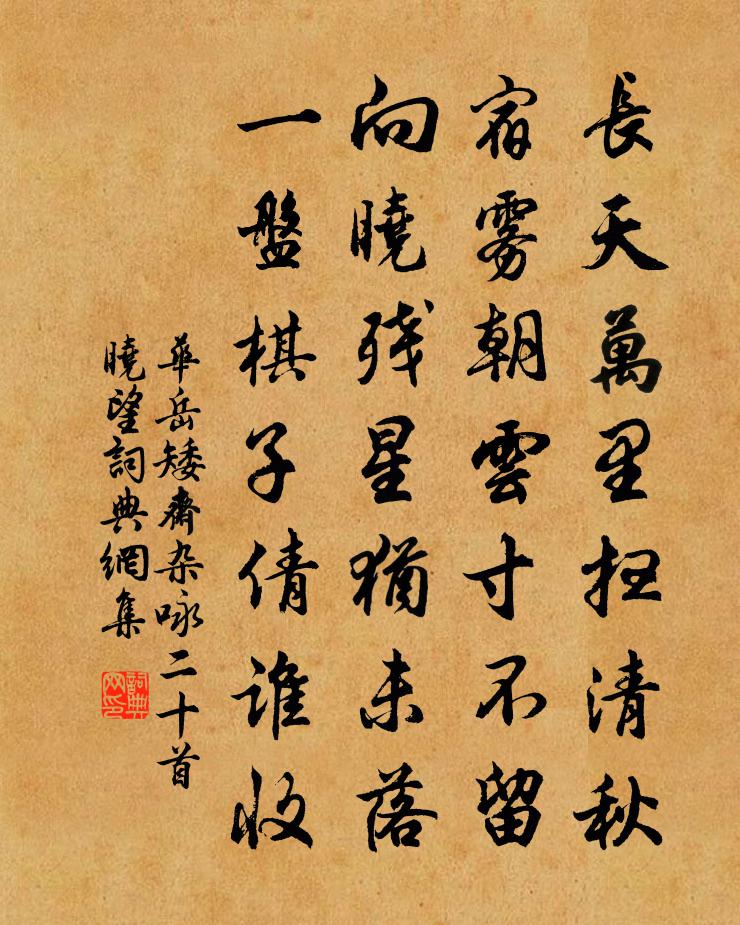 長天萬里扫清秋
宿雾朝雲寸不留
向曉残星猶未落
一盤棋子倩誰收
華岳矮齋杂咏二十首
曉望詞典網集
詞典网印